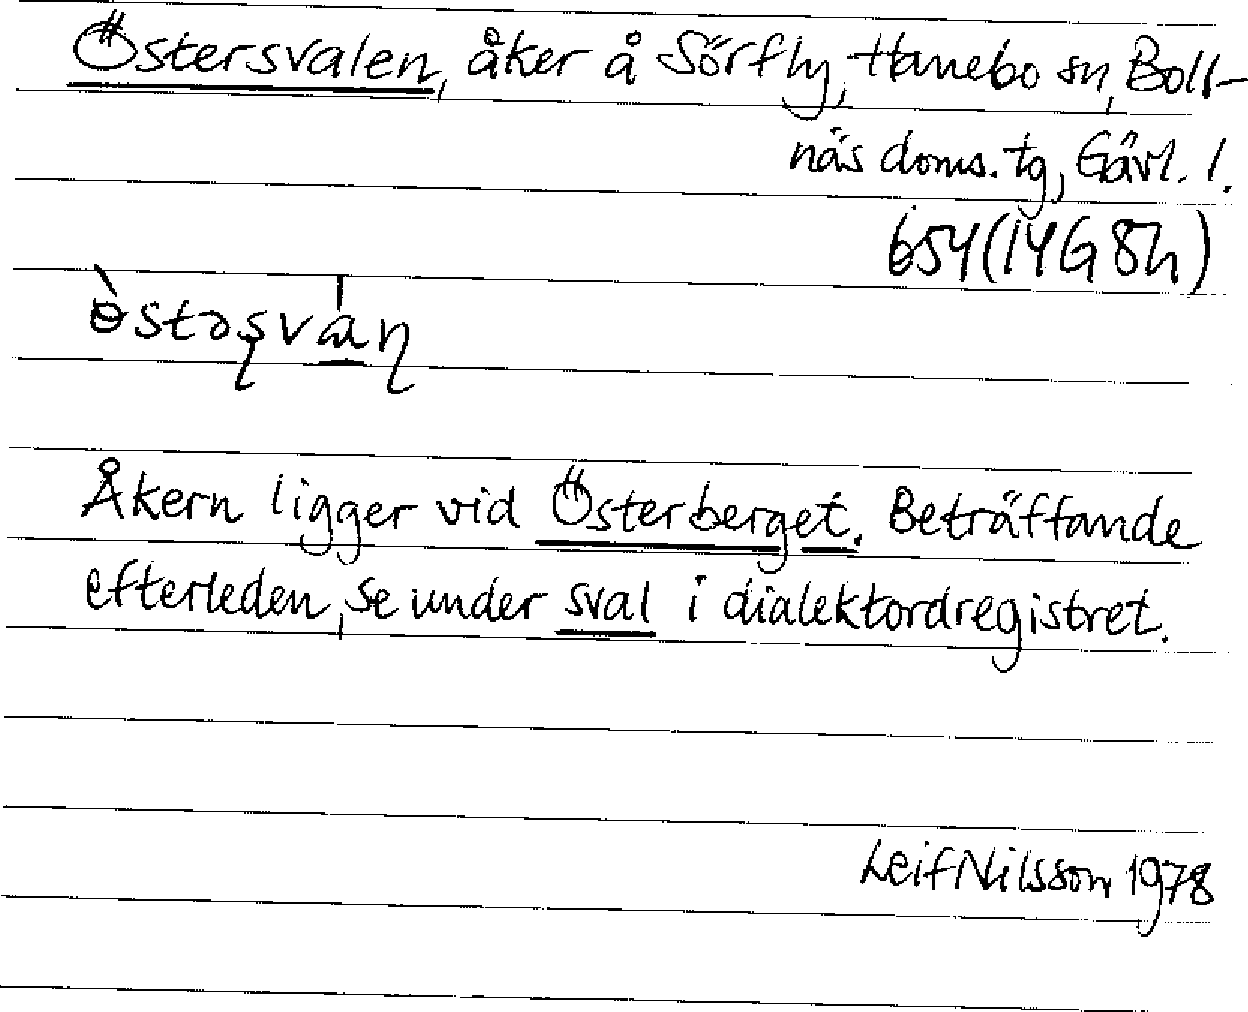 Östersvalen, åker å Sörfly, Hanebo sn, Boll-
näs doms. tg, Gävl. l.
654 (14G 8h)
Åkern ligger vid Österberget. Beträffande
efterleden, se under sval i dialektordregistret.
Leif Nilsson 1978